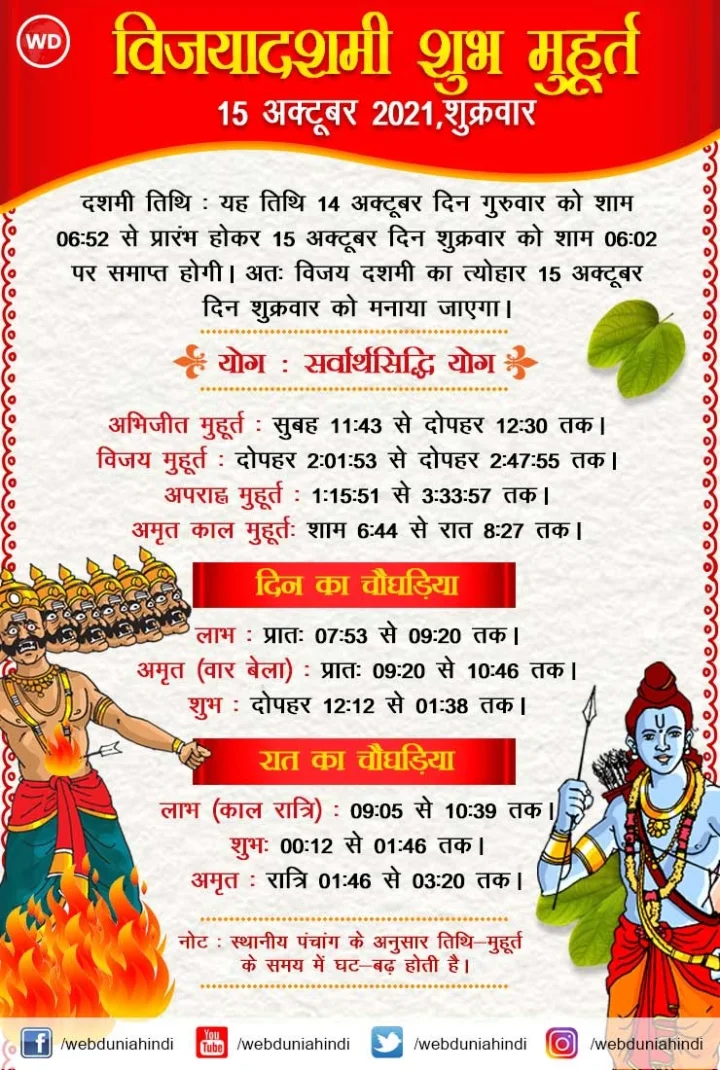 WD
विजयादशमी शुभ मुहूर्त
15 अक्टूबर 2021,शुक्रवार
दशमी तिथि : यह तिथि 14 अक्टूबर दिन गुरुवार को शाम
06:52 से प्रारंभ होकर 15 अक्टूबर दिन शुक्रवार को शाम 06:02
पर समाप्त होगी। अतः विजय दशमी का त्योहार 15 अक्टूबर
दिन शुक्रवार को मनाया जाएगा।
योग : सर्वार्थसिद्धि योग
अभिजीत मुहूर्त : सुबह 11:43 से दोपहर 12:30 तक।
विजय मुहूर्त : दोपहर 2:01:53 से दोपहर 2:47:55 तक।
अपराह्न मुहूर्त : 1:15:51 से 3:33:57 तक।
अमृत काल मुहूर्तः शाम 6:44 से रात 8:27 तक।
दिन का चौघड़िया
लाभ : प्रातः 07:53 से 09:20 तक।
अमृत (वार बेला) : प्रातः 09:20 से 10:46 तक।
शुभ : दोपहर 12:12 से 01:38 तक।
रात का चौघड़िया
लाभ (काल रात्रि) : 09:05 से 10:39 तक।
शुभः 00:12 से 01:46 तक।
अमृत : रात्रि 01:46 से 03:20 तक।
नोट : स्थानीय पंचांग के अनुसार तिथि–मुहूर्त
के समय में घट–बढ़ होती है।
f /webduniahindi You Tube /webduniahindi /webduniahindi /webduniahindi